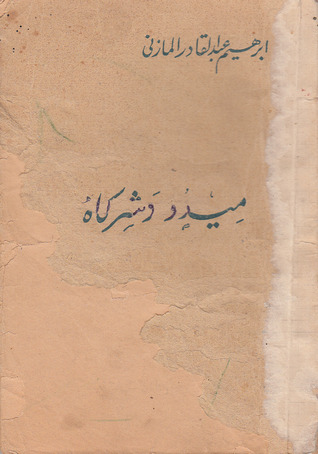 ابرهيم عبد القادر المازني
ميدو وشركاه